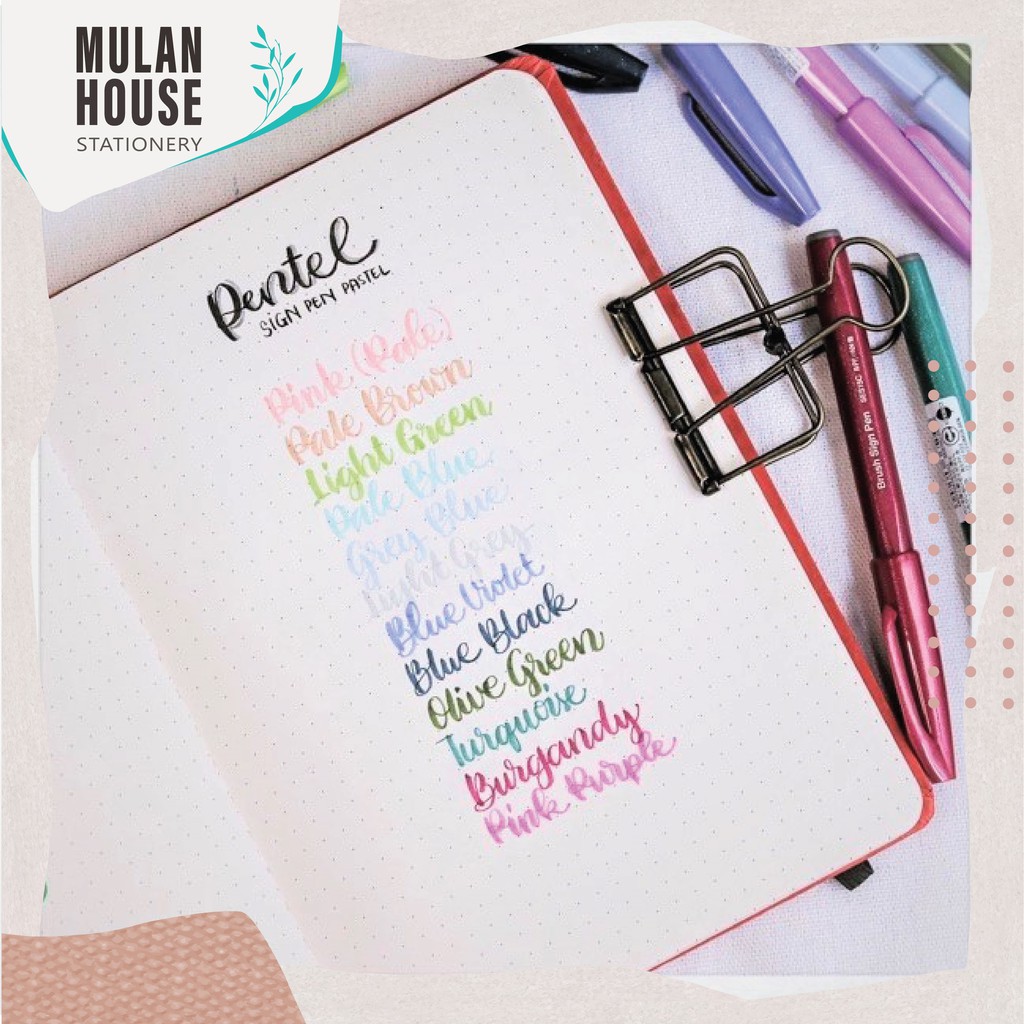 MULAN
HOUSE
STATIONERY
Pentel
SIGN PEN PASTEL
Pink (Pale)
Pale Brown
Light Green
Pale Blue
Grey Blue
Light Grey
Blue Violet
Blue Black
Olive Green
Turquoise
Burgandy
Pink Purple
Brush Sign Pen